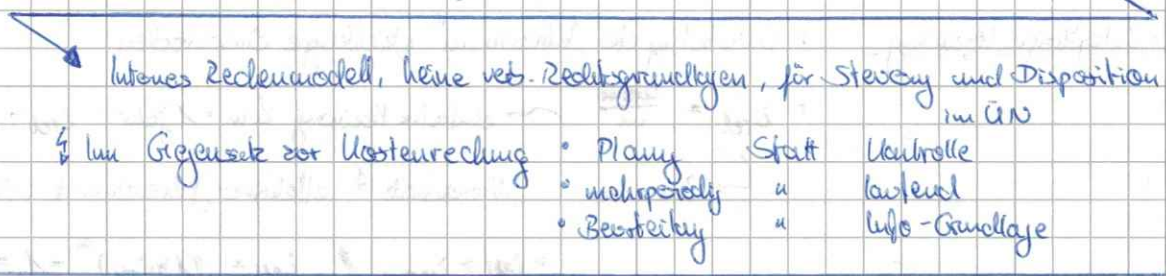 Internes Rechenmodell, keine verb. Rechtsgrundlagen, für Steuerung und Disposition
im UN
↯ Im Gegensatz zur Kostenrechnung • Planung Statt Kontrolle
• mehrperiodig " laufend
• Beurteilung " Info-Grundlage